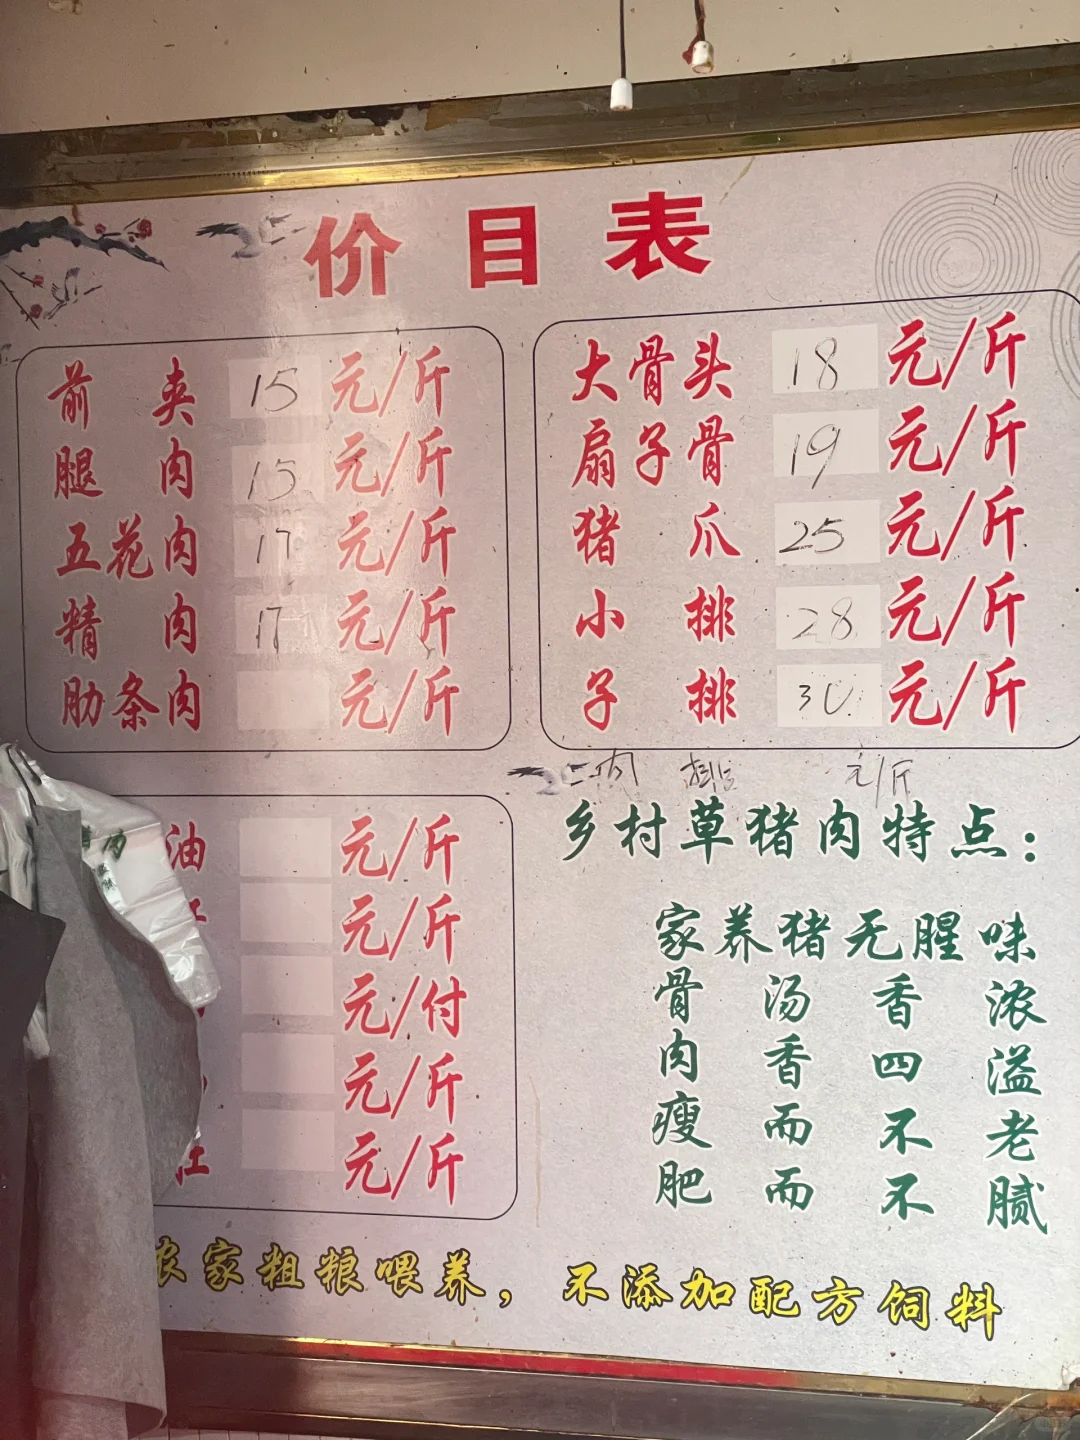 价目表
前夹 15 元/斤
腿肉 15 元/斤
五花肉 17 元/斤
精肉 17 元/斤
肋条肉 元/斤
大骨头 18 元/斤
扇子骨 19 元/斤
猪爪 25 元/斤
小排 28 元/斤
子排 30 元/斤
肉排 元/斤
油 元/斤
元/斤
元/付
元/斤
肚 元/斤
乡村草猪肉特点：
家养猪无腥味
骨汤香浓
肉香四溢
瘦而不老
肥而不腻
农家粗粮喂养，不添加配方饲料